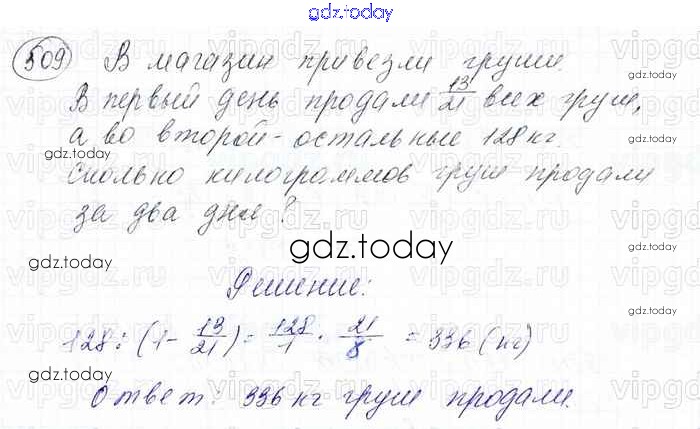 gdz.today
509 В магазин привезли груши.
В первый день продали 13/21 всех груш,
а во второй - остальные 128 кг.
gdz.today
Сколько килограммов груш продали
за два дня?
gdz.today
gdz.today
Решение:
128 : (1 - 13/21) = 128/1 · 21/8 = 336 (кг)
gdz.today
Ответ: 336 кг груш продали.
gdz.today